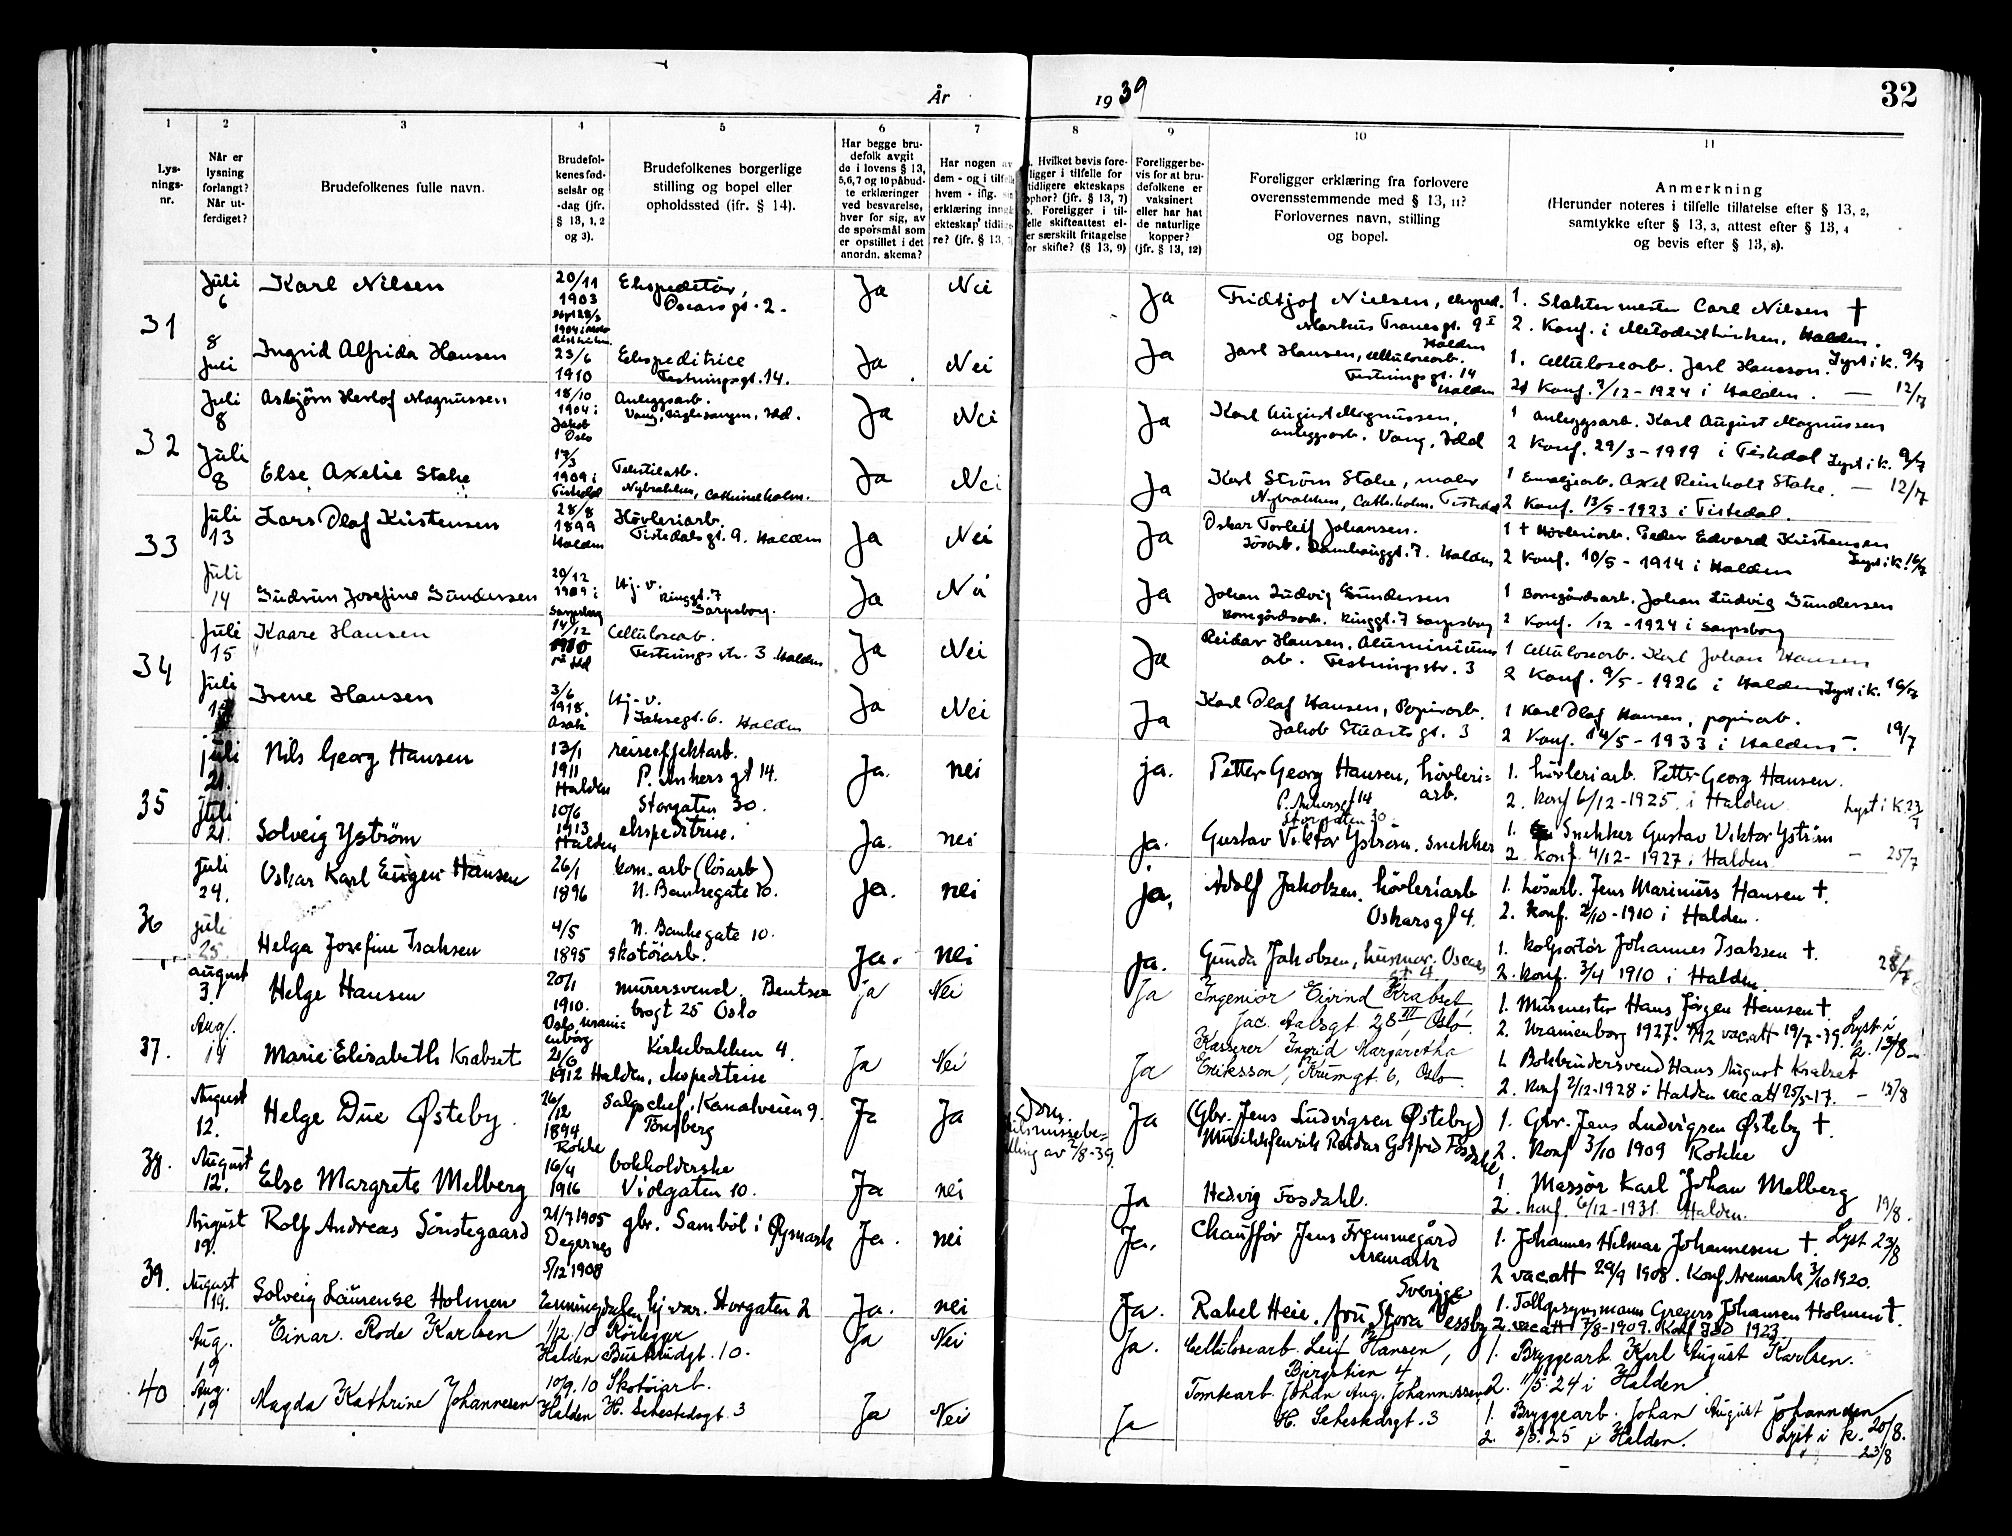 År 1939
32
1 2 3 4 5 6 7 8 9 10 11
Lys-
nings-
nr.
Når er
lysning
forlangt?
Når ut-
ferdiget?
Brudefolkenes fulle navn.
Brudefol-
kenes fød-
selsår og
-dag (jfr.
§ 13, 1, 2
og 3).
Brudefolkenes borgerlige
stilling og bopel eller
opholdssted (jfr. § 14).
Har begge bru-
defolk avgit
de i lovens § 13,
5,6,7 og 10 påbud-
te erklæringer
ved besvarelse,
hver for sig, av
de spørsmål som
er opstillet i det
anordn. skema?
Har nogen av
dem - og i tilfelle
hvem - iflg.
erklæring inngå
ekteskap tidlige
re? (jfr. § 13,
Hvilket bevis fore-
ligger i tilfelle for
tidligere ekteskaps
ophør? (jfr. § 13, 7)
Foreligger i til-
elle skifteattest el-
er særskilt fritagelse
for skifte? (§ 13, 9)
Foreligger be-
vis for at bru-
defolkene er
vaksinert
eller har hat
de naturlige
kopper?
(jfr. § 13, 12)
Foreligger erklæring fra forlovere
overensstemmende med § 13, 11?
Forlovernes navn, stilling
og bopel.
Anmerkning
(Herunder noteres i tilfelle tillatelse efter § 13, 2,
samtykke efter § 13, 3, attest efter § 13, 4
og bevis efter § 13, 8).
31
Juli 6
Karl Nilsen
20/11 1903
Ekspeditør,
Oscarsgt. 2.
Ja Nei Ja
Fridtjof Nielsen, eksped.
Markus Tranesgt. 9 I
Halden
1. Slaktermester Carl Nilsen †
2. Konf. i Metodistkirken, Halden.
Lyst i k. 9/7
8 Juli
Ingrid Alfrida Hansen
23/6 1910
Ekspeditrice
Festningsgt. 14.
Ja Nei Ja
Jarl Hansen, cellulosearb.
Festningsgt. 14
Halden
1. Cellulosearb. Jarl Hansson.
2 Konf. 7/12-1924 i Halden. — 12/7
32
Juli 8
Asbjørn Herlof Magnussen
18/10 1904 i
Jakob
Oslo
Anleggsarb.
Vang, Idd.
Ja Nei Ja
Karl August Magnussen,
anleggsarb. Vang, Idd
1 anleggsarb. Karl August Magnussen
2 Konf. 29/3-1919 i Tistedal Lyst i k. 9/7
Juli 8
Else Axelie Stake
1909 i
Tistedal
Tekstilarb.
Nybrakken, Cathrineholm.
Ja Nei Ja
Karl Strøm Stake, maler
Nybrakken, Cath.holm. Tistedal
1 Emaljearb. Axel Reinholt Stake. — 12/7
2 Konf. 13/5-1923 i Tistedal.
33
Juli 13
Lars Olaf Kristensen
28/8 1899
Halden
Høvleriarb.
Tistedalsgt. 9. Halden
Ja Nei Ja
Oskar Torleif Johansen.
Løsarb. Damhauggt. 7. Halden
1 † Høvleriarb. Peder Edvard Kristensen
2 Konf. 10/5-1914 i Halden Lyst i k. 16/7
Juli 14
Gudrun Josefine Gundersen
20/12 1909 i
Sarpsborg
Hj. v.
Ringgt. 7
Sarpsborg.
Ja Nei Ja
Johan Ludvig Gundersen
Borregårdsarb. Ringgt. 7 Sarpsborg
1 Borregårdsarb. Johan Ludvig Gundersen
2 Konf. /12-1924 i Sarpsborg
34
Juli 15
Kaare Hansen
14/12
Celluloseab.
Festningsstr. 3 Halden
Ja Nei Ja
Reidar Hansen, Aluminiums
arb. Festningsstr. 3
1 Celluloseab. Karl Johan Hansen
2 Konf. 9/5-1926 i Halden Lyst i k. 16/7
Juli
Irene Hansen
3/6 1918.
Asak
Hj. v.
Halden
Ja Nei Ja
Karl Olaf Hansen, Papirarb.
Jakob Stuartsgt. 3
1 Karl Olaf Hansen, papirarb.
2 Konf. 14/5-1933 i Halden —. 19/7
35
juli 21.
Nils Georg Hansen
13/1 1911
Halden
reiseeffektarb.
P. Ankersgt 14.
Ja. nei ja.
Petter Georg Hansen, høvleri-
arb.
P. Ankersgt 14
1. høvleriarb. Petter Georg Hansen.
2. Konf 6/12-1925. i Halden Lyst i K 23/7
Juli 21.
Solveig Ystrøm
10/6 1913
Halden
Storgaten 30.
ekspeditrise.
Ja. nei ja.
Storgaten 30
Gustav Viktor Ystrøm. snekker
1. Snekker Gustav Viktor Ystrøm
2. konf. 4/12-1927 i Halden — 25/7
36
juli 24.
Oskar Karl Eugen Hansen
26/1 1896
kom. arb (løsarb)
N. Bankegate 10.
ja. nei ja.
Adolf Jakobsen, høvleriarb
Oskarsgt 4.
1. Løsarb. Jens Marinius Hansen †.
2. konf. 2/10-1910 i Halden.
juli 25.
Helga Josefine Isaksen
4/5 1895
N. Bankegate 10.
skotøiarb.
Ja. nei ja.
Gunda Jakobsen, husmor. Oscars
gt 4
1. kolportør Johannes Isaksen †
2. konf. 3/4 1910 i Halden.
37.
august 3.
Helge Hansen
20/1 1910.
Oslo, Urani-
enborg
murersvend. Bentse
brogt 25 Oslo
ja Nei Ja
Ingeniør Eivind Krabset,
Jac. Aalsgt. 28 III, Oslo.
1. Murmester Hans Jørgen Hansen †
2. Uranienborg 1927. vacatt 19/7-39. Lyst i k. 13/8 —
Aug. 14
Marie Elisabeth Krabset
21/6 1912 Halden, ekspeditrise
Kirkebakken 4.
Ja Nei Ja
Kasserer Ingrid Margaretha
Eriksson, Krumgt. 6, Oslo.
1. Bokbindersvend Hans August Krabset
2. Konf 2/12-1928 i Halden vacatt 25/5-17. — 15/8
38.
August 12.
Helge Due Østeby.
26/12 1894
Rokke
Salgschef, Kanalveien 9.
Tønsberg
Ja Ja
av 2/8-39.
Ja
(Gbr. Jens Ludvigsen Østeby)
Musikkfenrik Reidar Gotfred Fosdahl
1. Gbr. Jens Ludvigsen Østeby †.
2. Konf 3/10 1909 Rokke
August 12.
Else Margrete Melberg
16/4 1916
bokholderske
Violgaten 10.
Ja nei Ja
Hedvig Fosdahl.
1. Massør Karl Johan Melberg
2. konf. 6/12-1931. Halden. 19/8.
39.
August 19.
Rolf Andreas Sønstegaard
21/7 1905
Degernes
gbr. Sambøl i Øymark
Ja. nei Ja.
Chauffør Jens Fremmegård
Aremark
1. Johannes Hilmar Johannesen †. Lyst 23/8
2 vacatt 29/9 1908. Konf Aremark 3/10 1920.
August 19.
Solveig Laurense Holmen
5/12 1908
Enningdalen hj var. Storgaten 2
Ja. nei Ja.
Rakel Heie, fru, Stora Sverige
1. Tollopsynsmann Gregers Johansen Holmen †.
2. vacatt 7/8-1909. Konf 1923.
40
Aug. 19
Einar Rode Karlsen
1/12.10
Halden
Rørlegger
Busterudgt. 10.
Ja Nei Ja.
Celluloseab. Leif Hansen,
Bjergstien 4
1. Bryggearb. Karl August Karlsen.
2. 11/5-24 i Halden
Aug. 19
Magda Kathrine Johannesen
10/9.10
Halden
Skotøiarb.
H. Sehestedsgt. 3
Ja Nei Ja
Tomtearb. Johan Aug. Johannessen,
H. Sehestedsgt. 3
1. Bryggearb. Johan August Johannesen
2. 3/5.25 i Halden. Lyst i k. 20/8.
23/8